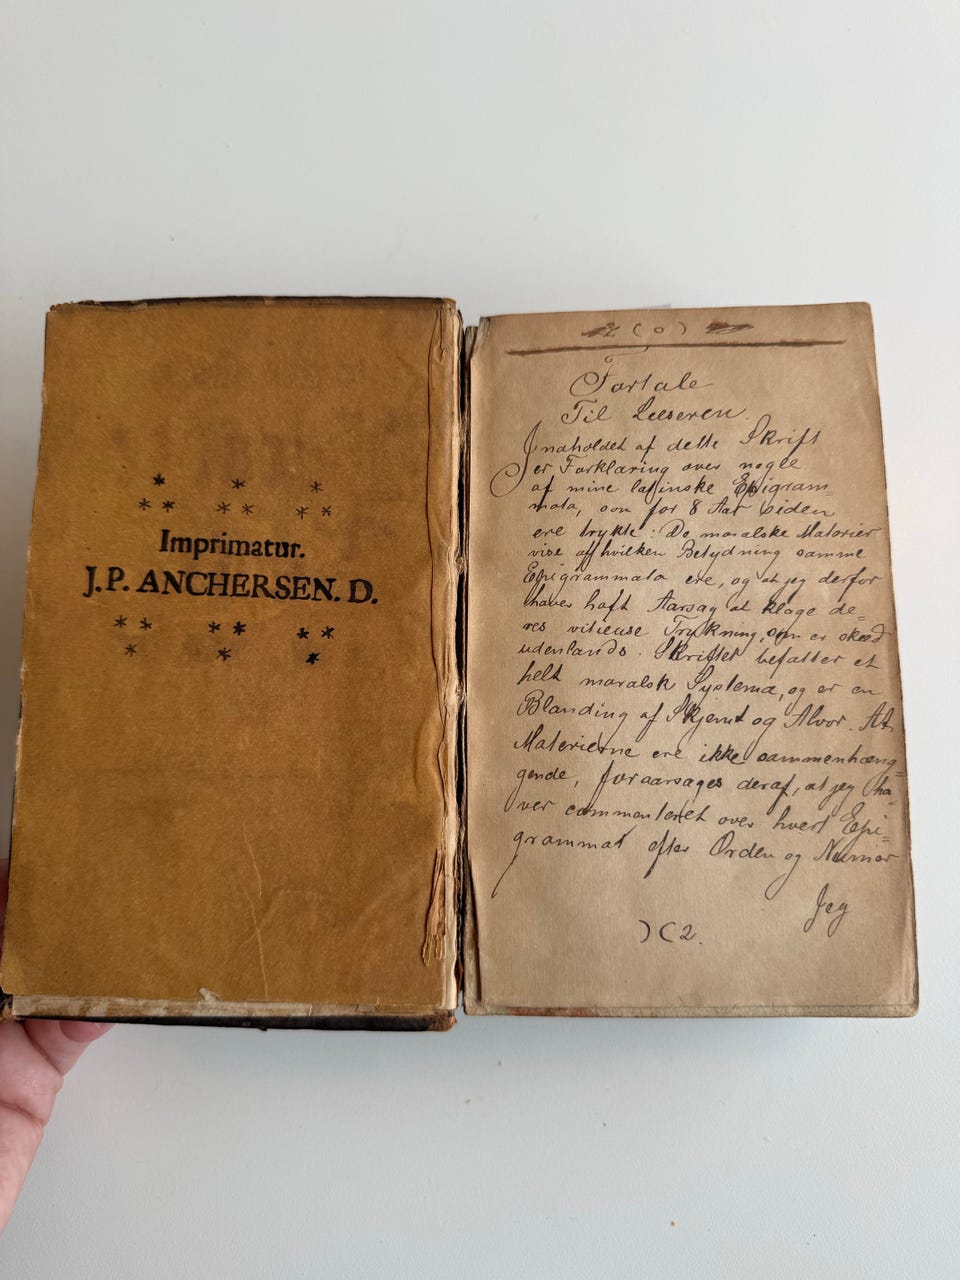 *  *  *
* *  * *  * *
Imprimatur.
J. P. ANCHERSEN. D.
* *  * *  * *
*  *  *
( o )
Fortale
Til Læseren.
Indholdet af dette Skrift
er Forklaring over nogle
af mine latinske Epigram=
mata, som for 8 Aar siden
ere trykte: De moralske Materier
vise af hvilken Betydning samme
Epigrammata ere, og at jeg derfor
haver haft Aarsag at klage de=
res vitieuse Trykning, som er skeed
udenlands. Skriftet befatter et
helt moralsk Systema, og er en
Blanding af Skjemt og Alvor. At
Materierne ere ikke sammenhæng=
gende, foraarsages deraf, at jeg ha=
ver commenteret over hvert Epi=
grammat efter Orden og Numer
Jeg
)( 2.